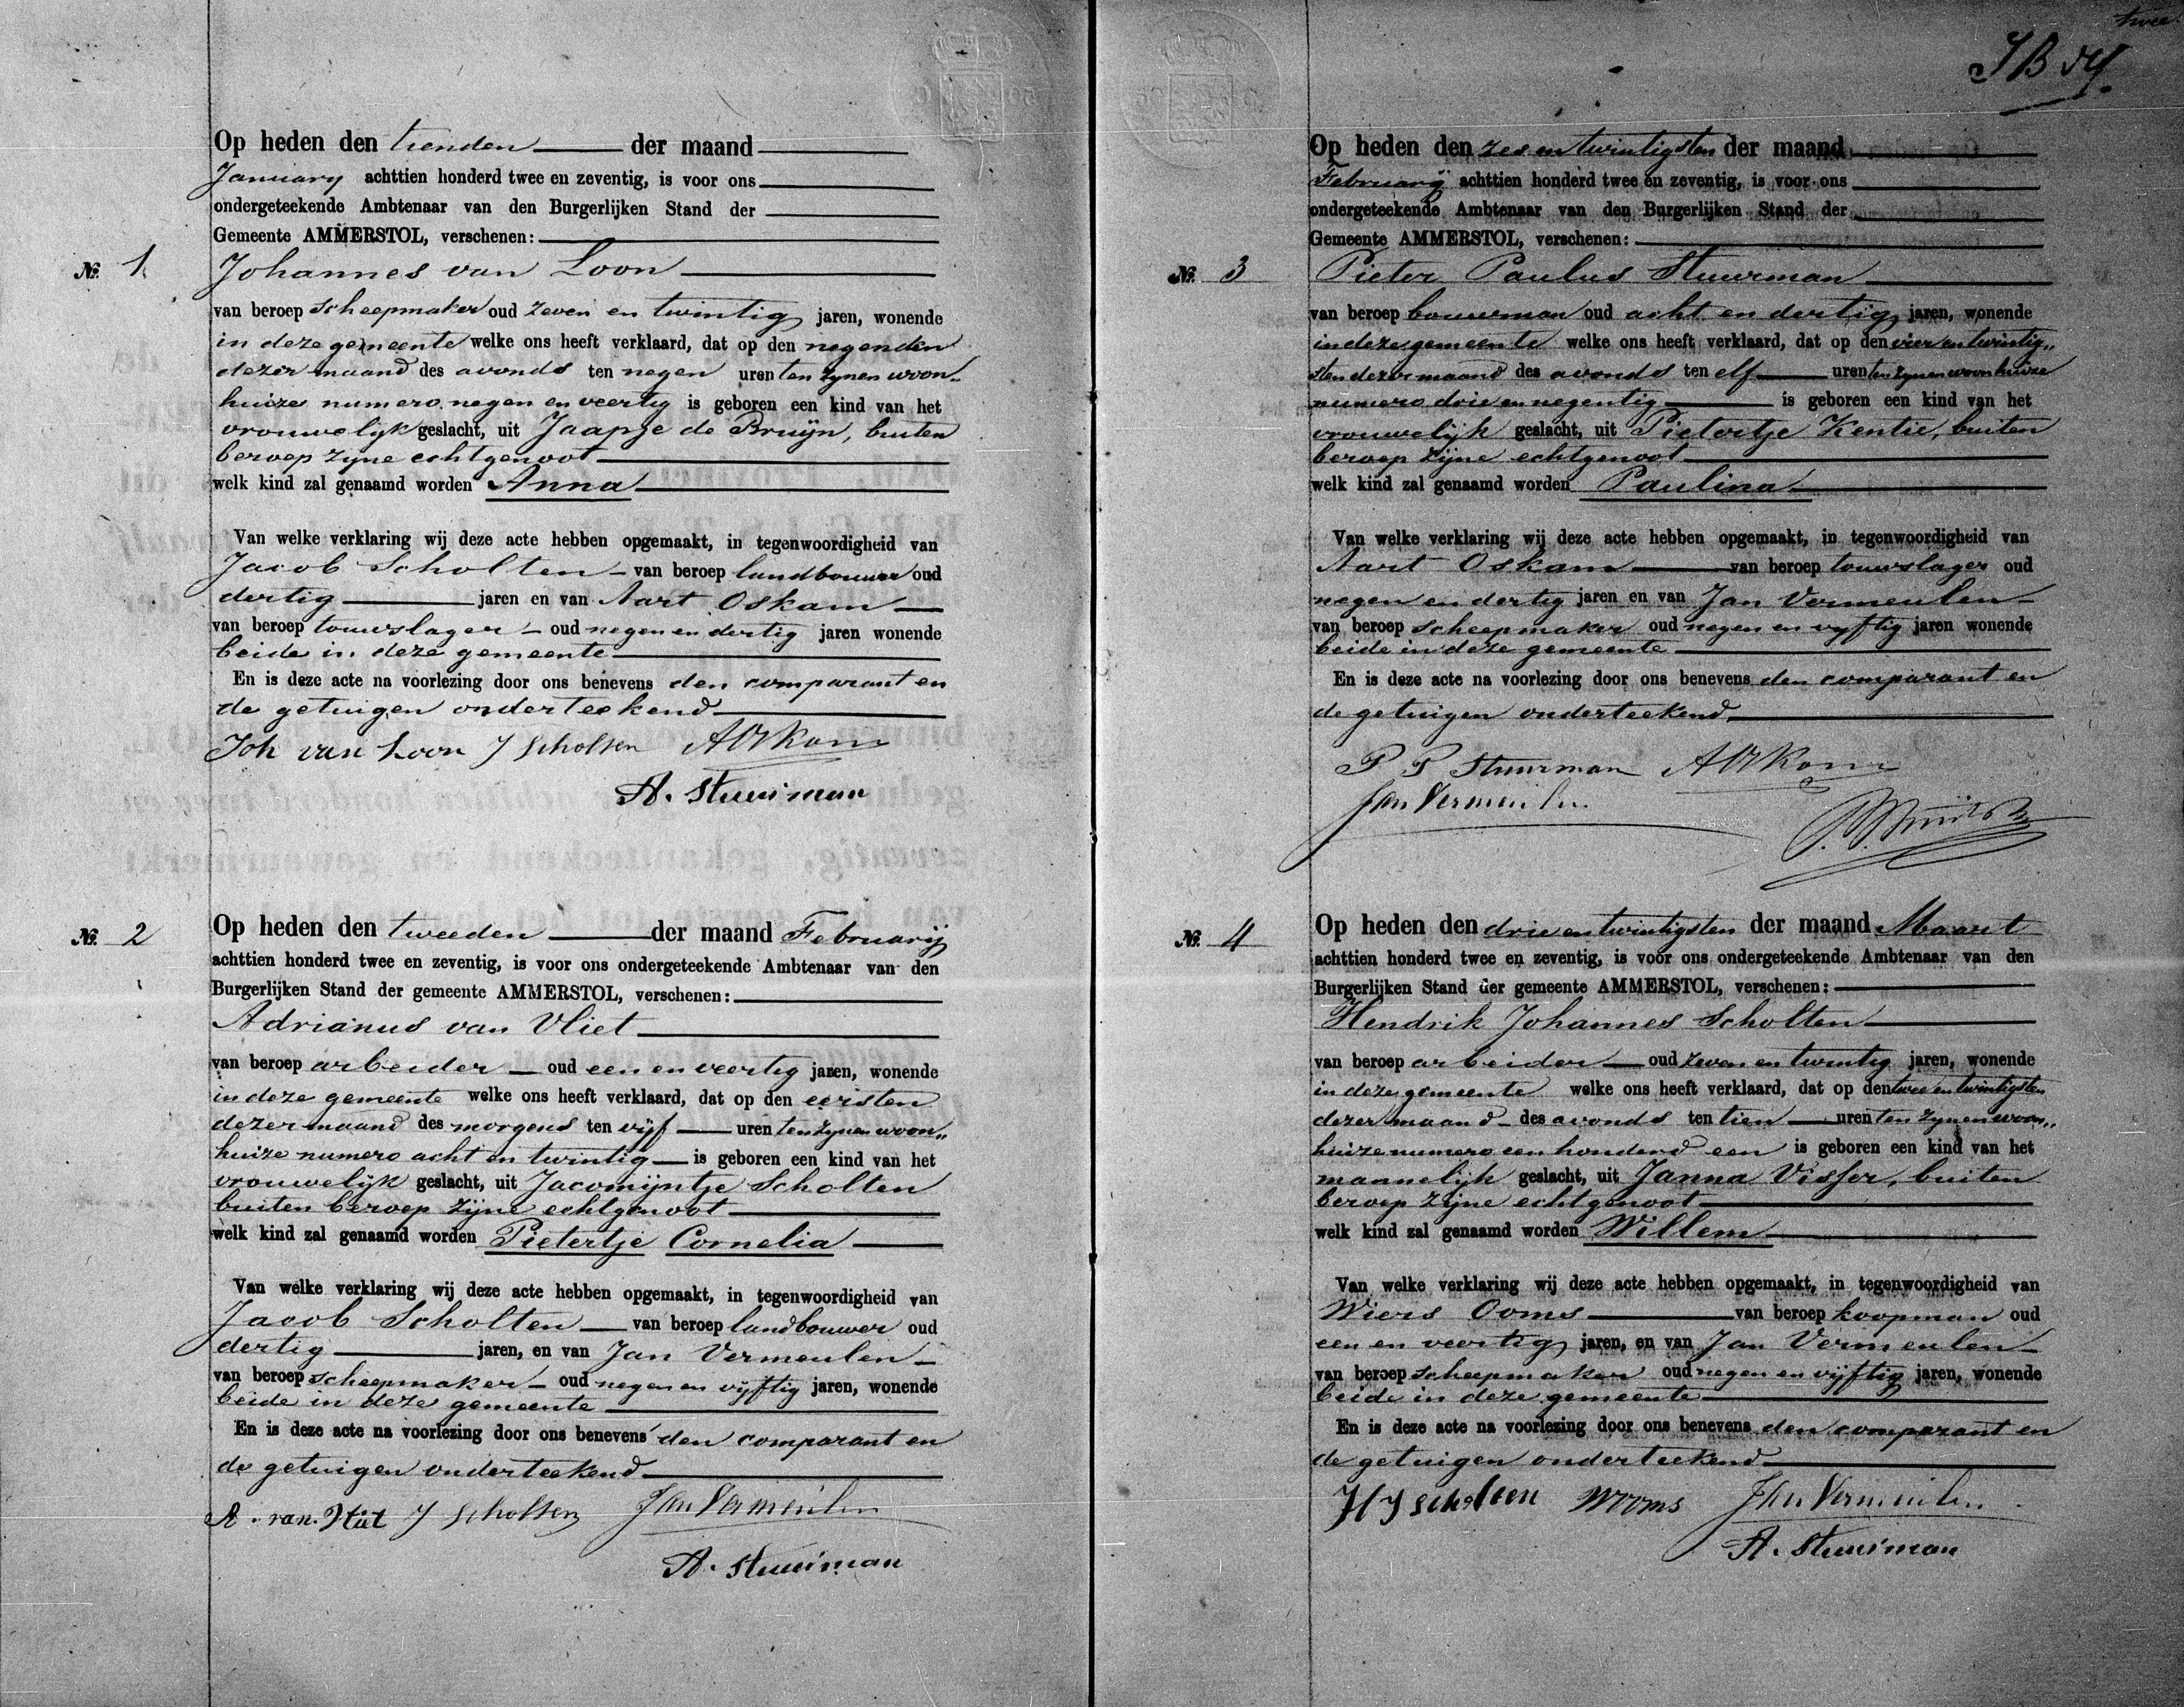 Op heden den tienden der maand
January achttien honderd twee en zeventig, is voor ons
ondergeteekende Ambtenaar van den Burgerlijken Stand der
Gemeente AMMERSTOL, verschenen:
No. 1 Johannes van Loon
van beroep scheepmaker oud zeven en twintig jaren, wonende
in deze gemeente welke ons heeft verklaard, dat op den negenden
dezer maand des avonds ten negen uren ten zynen woon„
huize numero negen en veertig is geboren een kind van het
vrouwelyk geslacht, uit Jaapje de Bruyn, buiten
beroep zyne echtgenoot
welk kind zal genaamd worden Anna
Van welke verklaring wij deze acte hebben opgemaakt, in tegenwoordigheid van
Jacob Scholten van beroep landbouwer oud
dertig jaren en van Aart Oskam
van beroep touwslager oud negen en dertig jaren wonende
beide in deze gemeente
En is deze acte na voorlezing door ons benevens den comparant en
de getuigen onderteekend
Joh van Loon J Scholten A Oskam
A. Stuurman
No. 2 Op heden den tweeden der maand Februarij
achttien honderd twee en zeventig, is voor ons ondergeteekende Ambtenaar van den
Burgerlijken Stand der gemeente AMMERSTOL, verschenen:
Adrianus van Vliet
van beroep arbeider oud een en veertig jaren, wonende
in deze gemeente welke ons heeft verklaard, dat op den eersten
dezer maand des morgens ten vijf uren ten zynen woon„
huize numero acht en twintig is geboren een kind van het
vrouwelijk geslacht, uit Jacomijntje Scholten
buiten beroep zijne echtgenoot
welk kind zal genaamd worden Pietertje Cornelia
Van welke verklaring wij deze acte hebben opgemaakt, in tegenwoordigheid van
Jacob Scholten van beroep landbouwer oud
dertig jaren, en van Jan Vermeulen
van beroep scheepmaker oud negen en vijftig jaren, wonende
beide in deze gemeente
En is deze acte na voorlezing door ons benevens den comparant en
de getuigen onderteekend
A. van Vliet J Scholten Jan Vermeulen
A. Stuurman
twee
Op heden den zes en twintigsten der maand
Februarij achttien honderd twee en zeventig, is voor ons
ondergeteekende Ambtenaar van den Burgerlijken Stand der
Gemeente AMMERSTOL, verschenen:
No. 3 Pieter Paulus Stuurman
van beroep bouwman oud acht en dertig jaren, wonende
in deze gemeente welke ons heeft verklaard, dat op den vier en twintig„
sten dezer maand des avonds ten elf uren ten zynen woonhuize
numero drie en negentig is geboren een kind van het
vrouwelijk geslacht, uit Pietertje Kentie, buiten
beroep zijne echtgenoot
welk kind zal genaamd worden Paulina
Van welke verklaring wij deze acte hebben opgemaakt, in tegenwoordigheid van
Aart Oskam van beroep touwslager oud
negen en dertig jaren en van Jan Vermeulen
van beroep scheepmaker oud negen en vyftig jaren wonende
beide in deze gemeente
En is deze acte na voorlezing door ons benevens den comparant en
de getuigen onderteekend
P P Stuurman A Oskam
Jan Vermeulen
No. 4 Op heden den drie en twintigsten der maand Maart
achttien honderd twee en zeventig, is voor ons ondergeteekende Ambtenaar van den
Burgerlijken Stand der gemeente AMMERSTOL, verschenen:
Hendrik Johannes Scholten
van beroep arbeider oud zeven en twintig jaren, wonende
in deze gemeente welke ons heeft verklaard, dat op den twee en twintigsten
dezer maand des avonds ten tien uren ten zynen woon„
huize numero een honderd een is geboren een kind van het
mannelijk geslacht, uit Janna Visser, buiten
beroep zijne echtgenoot
welk kind zal genaamd worden Willem
Van welke verklaring wij deze acte hebben opgemaakt, in tegenwoordigheid van
Wiers Ooms van beroep koopman oud
een en veertig jaren, en van Jan Vermeulen
van beroep scheepmaker oud negen en vijftig jaren, wonende
beide in deze gemeente
En is deze acte na voorlezing door ons benevens den comparant en
de getuigen onderteekend
H J Scholten W Ooms Jan Vermeulen
A. Stuurman